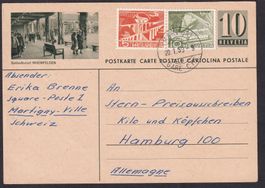 10
HELVETIA
POSTKARTE CARTE POSTALE CARTOLINA POSTALE
Solbadkurort RHEINFELDEN
Absender:
Erika Brenne
Square-Poste 1
Martigny-Ville
Schweiz
An
Stern-Preisausschreiben
Kilo und Köpfchen
Hamburg 100
Allemagne